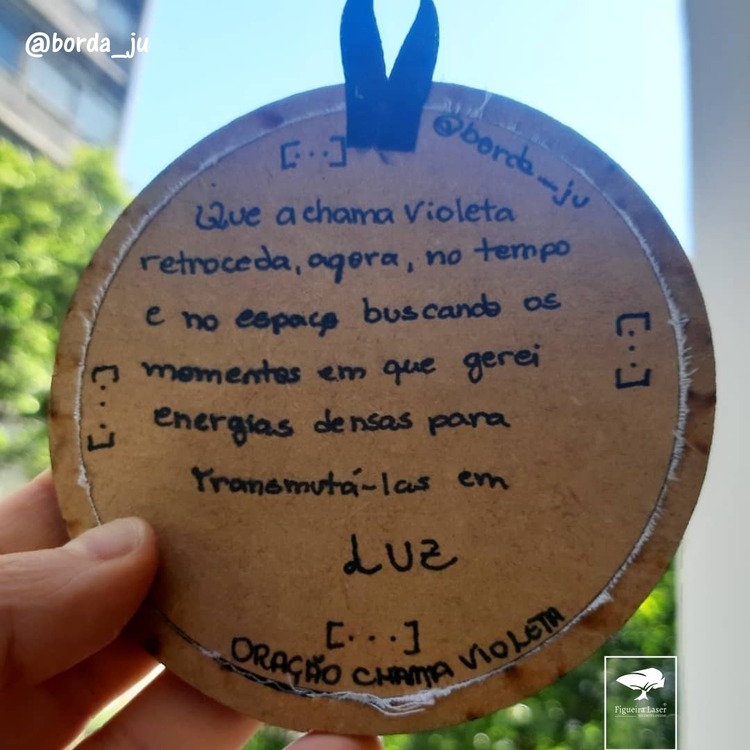 @borda_ju
[...]
@borda_ju
Que a chama violeta
retroceda, agora, no tempo
e no espaço buscando os
[...]
momentos em que gerei
[...]
energias densas para
transmutá-las em
LUZ
[...]
ORAÇÃO CHAMA VIOLETA
Figueira Laser